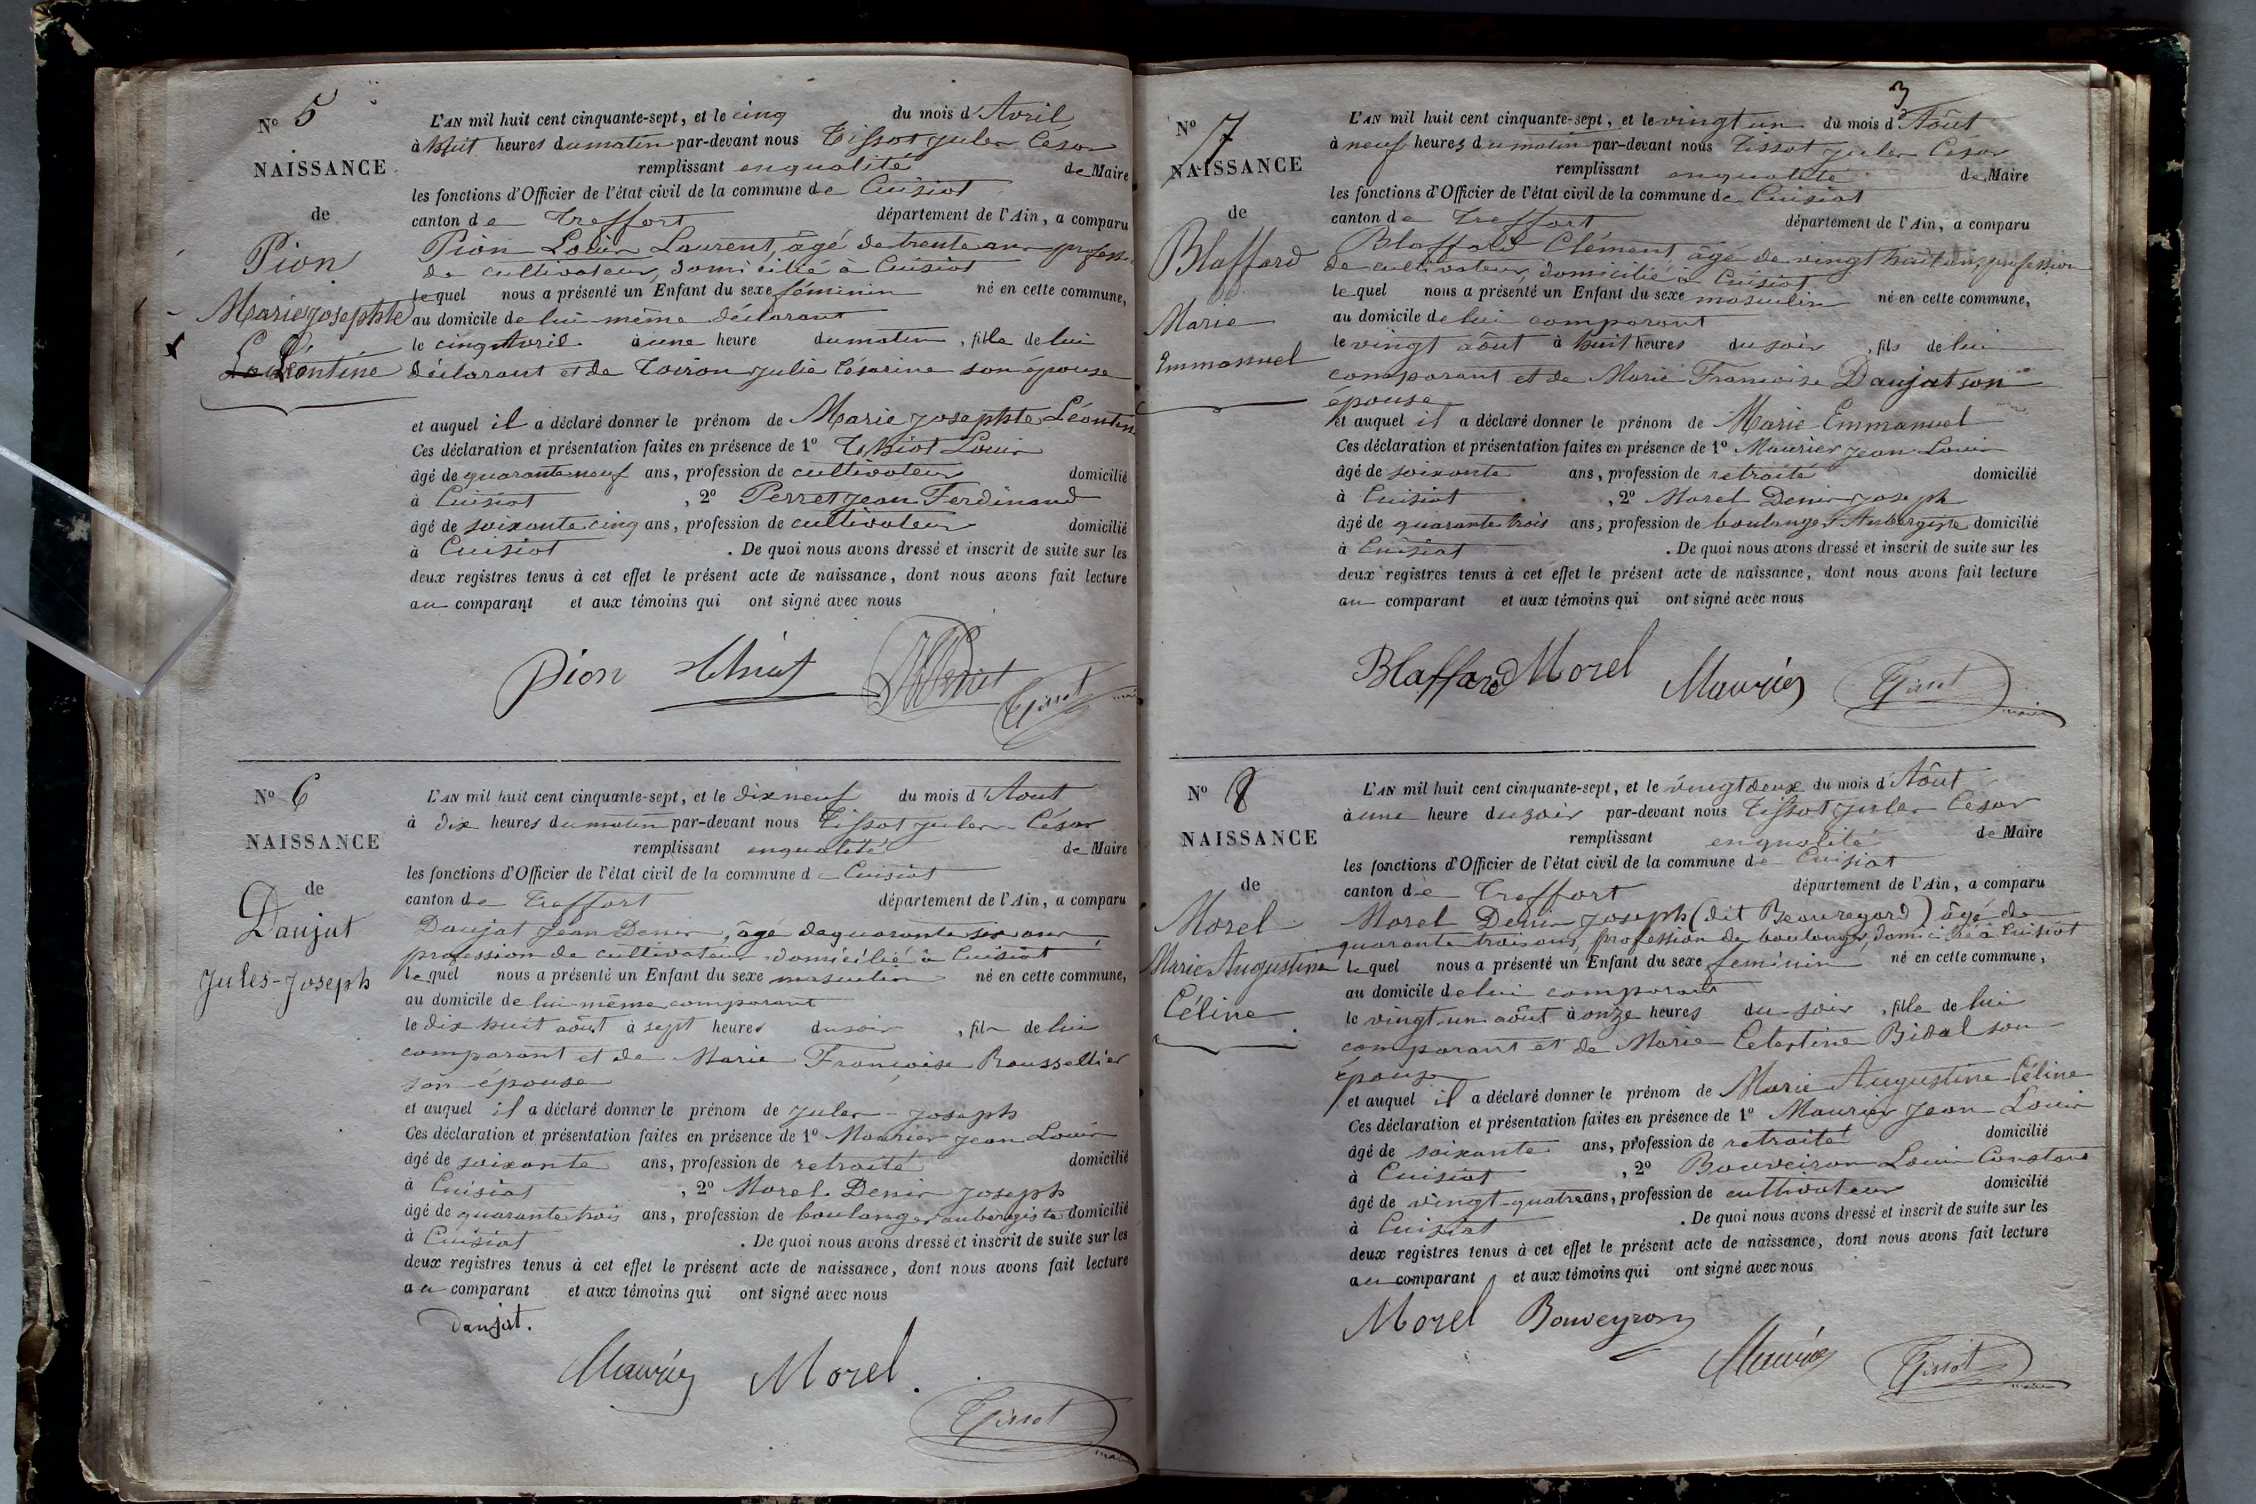 N° 5
NAISSANCE
de
Pion
Marie josephte
Léontine
L'AN mil huit cent cinquante-sept, et le cinq du mois d'Avril
à huit heures du matin par-devant nous Tissot jules César
remplissant en qualité de Maire
les fonctions d'Officier de l'état civil de la commune de Cuisiat
canton de Treffort département de l'Ain, a comparu
Pion Louis Laurent, âgé de trente ans profess.
de cultivateur, domicilié à Cuisiat
lequel nous a présenté un Enfant du sexe féminin né en cette commune,
au domicile de lui-même déclarant
le cinq Avril à une heure du matin, fille de lui
déclarant et de Toiron julie Césarine son épouse
et auquel il a déclaré donner le prénom de Marie josephte Léontine
Ces déclaration et présentation faites en présence de 1° Louis
âgé de quarante neuf ans, profession de cultivateur domicilié
à Cuisiat, 2° Perret jean Ferdinand
âgé de soixante cinq ans, profession de cultivateur domicilié
à Cuisiat. De quoi nous avons dressé et inscrit de suite sur les
deux registres tenus à cet effet le présent acte de naissance, dont nous avons fait lecture
au comparant et aux témoins qui ont signé avec nous
Pion Tissot
N° 6
NAISSANCE
de
Daujat
Jules-Joseph
L'AN mil huit cent cinquante-sept, et le dix neuf du mois d'Aout
à dix heures du matin par-devant nous Tissot jules César
remplissant en qualité de Maire
les fonctions d'Officier de l'état civil de la commune de Cuisiat
canton de Treffort département de l'Ain, a comparu
Daujat jean Denis, âgé de quarante six ans
profession de cultivateur domicilié à Cuisiat
lequel nous a présenté un Enfant du sexe masculin né en cette commune,
au domicile de lui-même comparant
le dix huit août à sept heures du soir, fils de lui
comparant et de Marie Françoise Roussellier
son épouse
et auquel il a déclaré donner le prénom de jules-joseph
Ces déclaration et présentation faites en présence de 1° Maurier jean Louis
âgé de soixante ans, profession de retraité domicilié
à Cuisiat, 2° Morel Denis joseph
âgé de quarante trois ans, profession de boulanger aubergiste domicilié
à Cuisiat. De quoi nous avons dressé et inscrit de suite sur les
deux registres tenus à cet effet le présent acte de naissance, dont nous avons fait lecture
au comparant et aux témoins qui ont signé avec nous
Daujat.
Maurier Morel.
Tissot
3
N° 7
NAISSANCE
de
Blaffard
Marie
Emmanuel
L'AN mil huit cent cinquante-sept, et le vingt un du mois d'Août
à neuf heures du matin par-devant nous Tissot jules César
remplissant en qualité de Maire
les fonctions d'Officier de l'état civil de la commune de Cuisiat
canton de Treffort département de l'Ain, a comparu
Blaffard Clément, âgé de vingt huit ans, profession
de cultivateur, domicilié à Cuisiat
lequel nous a présenté un Enfant du sexe masculin né en cette commune,
au domicile de lui comparant
le vingt août à huit heures du soir, fils de lui
comparant et de Marie Françoise Daujat son
épouse
et auquel il a déclaré donner le prénom de Marie Emmanuel
Ces déclaration et présentation faites en présence de 1° Maurier jean Louis
âgé de soixante ans, profession de retraité domicilié
à Cuisiat, 2° Morel Denis joseph
âgé de quarante trois ans, profession de boulanger Aubergiste domicilié
à Cuisiat. De quoi nous avons dressé et inscrit de suite sur les
deux registres tenus à cet effet le présent acte de naissance, dont nous avons fait lecture
au comparant et aux témoins qui ont signé avec nous
Blaffard Morel Maurier Tissot
N° 8
NAISSANCE
de
Morel
Marie Augustine
Céline
L'AN mil huit cent cinquante-sept, et le vingt deux du mois d'Août
à une heure du soir par-devant nous Tissot jules César
remplissant en qualité de Maire
les fonctions d'Officier de l'état civil de la commune de Cuisiat
canton de Treffort département de l'Ain, a comparu
Morel Denis joseph (dit Beauregard) âgé de
quarante trois ans, profession de boulanger, domicilié à Cuisiat
lequel nous a présenté un Enfant du sexe féminin né en cette commune,
au domicile de lui comparant
le vingt-un août à onze heures du soir, fille de lui
comparant et de Marie Celestine Bidal son
épouse
et auquel il a déclaré donner le prénom de Marie Augustine Céline
Ces déclaration et présentation faites en présence de 1° Maurier jean Louis
âgé de soixante ans, profession de retraité domicilié
à Cuisiat, 2° Bouveiron Louis Constant
âgé de vingt-quatre ans, profession de cultivateur domicilié
à Cuisiat. De quoi nous avons dressé et inscrit de suite sur les
deux registres tenus à cet effet le présent acte de naissance, dont nous avons fait lecture
au comparant et aux témoins qui ont signé avec nous
Morel Bouveyron
Maurier Tissot